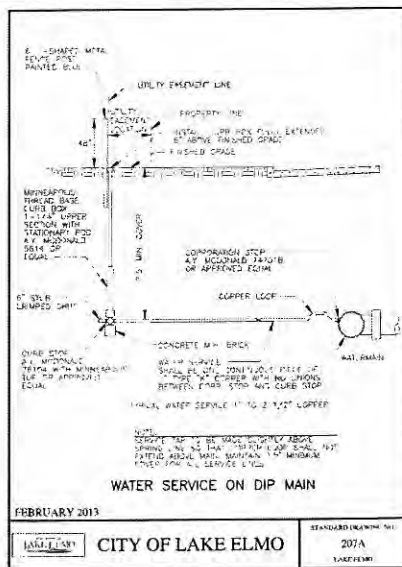 FENCE POST
PAINTED BLUE
UTILITY EASEMENT LINE
UTILITY
EASEMENT
LOCATION
PROPERTY LINE
ABOVE FINISHED GRADE
FINISHED GRADE
48"
MINNEAPOLIS
THREAD BASE
CURB BOX
1-1/4" UPPER
SECTION WITH
STATIONARY ROD
A.Y. McDONALD
5614 OR
EQUAL
MIN. COVER
CORPORATION STOP
A.Y. McDONALD
OR APPROVED EQUAL
COPPER LOOP
6" STUB
CRIMPED SHUT
CONCRETE BRICK
WATERMAIN
CURB STOP
A.Y. McDONALD
WITH MINNEAPOLIS
OR APPROVED
EQUAL
WATER SERVICE
SHALL BE ONE CONTINUOUS PIECE OF
TYPE "K" COPPER WITH NO UNIONS
BETWEEN CORP. STOP AND CURB STOP
WATER SERVICE 1" TO 2 1/2" COPPER
NOTE:
SERVICE TAP TO BE MADE SLIGHTLY ABOVE
SPRING LINE SO THAT COPPER LOOP SHALL NOT
EXTEND ABOVE MAIN. MAINTAIN MINIMUM
COVER FOR ALL SERVICE LINES
WATER SERVICE ON DIP MAIN
FEBRUARY 2013
LAKE ELMO
CITY OF LAKE ELMO
STANDARD DRAWING NO.
207A
LAKE ELMO